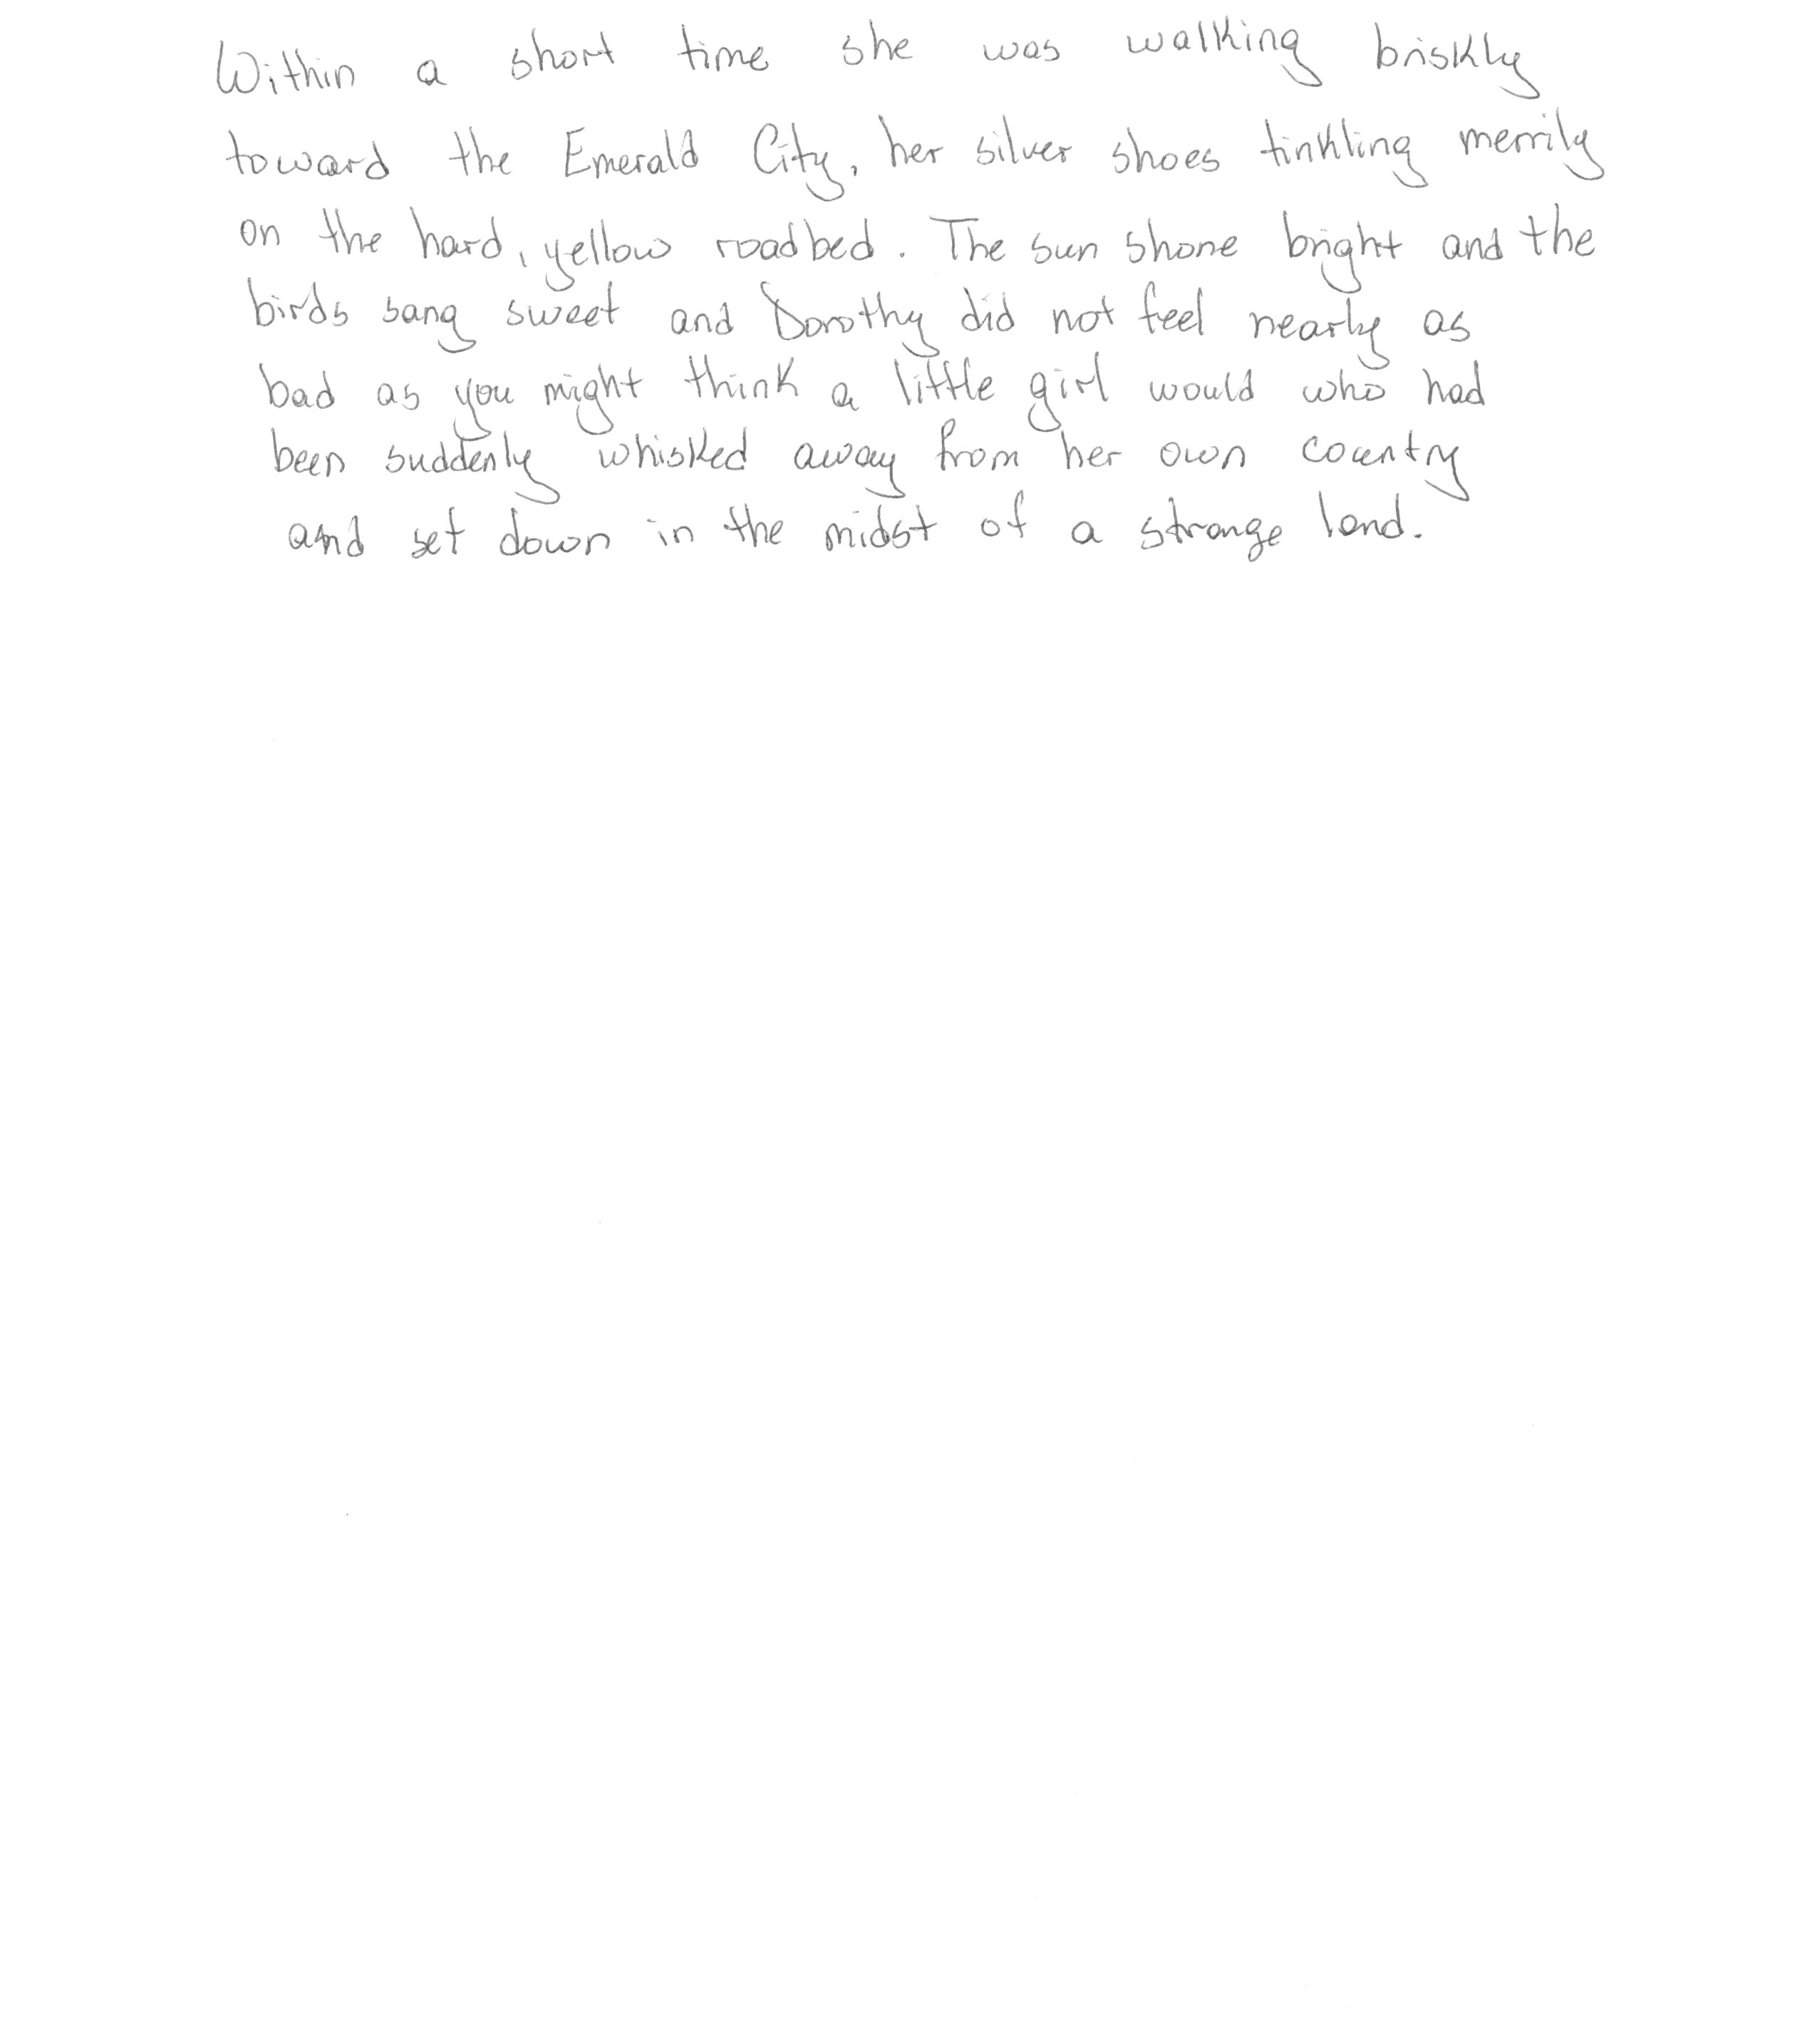 Within a short time she was walking briskly
toward the Emerald City, her silver shoes tinkling merrily
on the hard, yellow roadbed. The sun shone bright and the
birds sang sweet and Dorothy did not feel nearly as
bad as you might think a little girl would who had
been suddenly whisked away from her own country
and set down in the midst of a strange land.